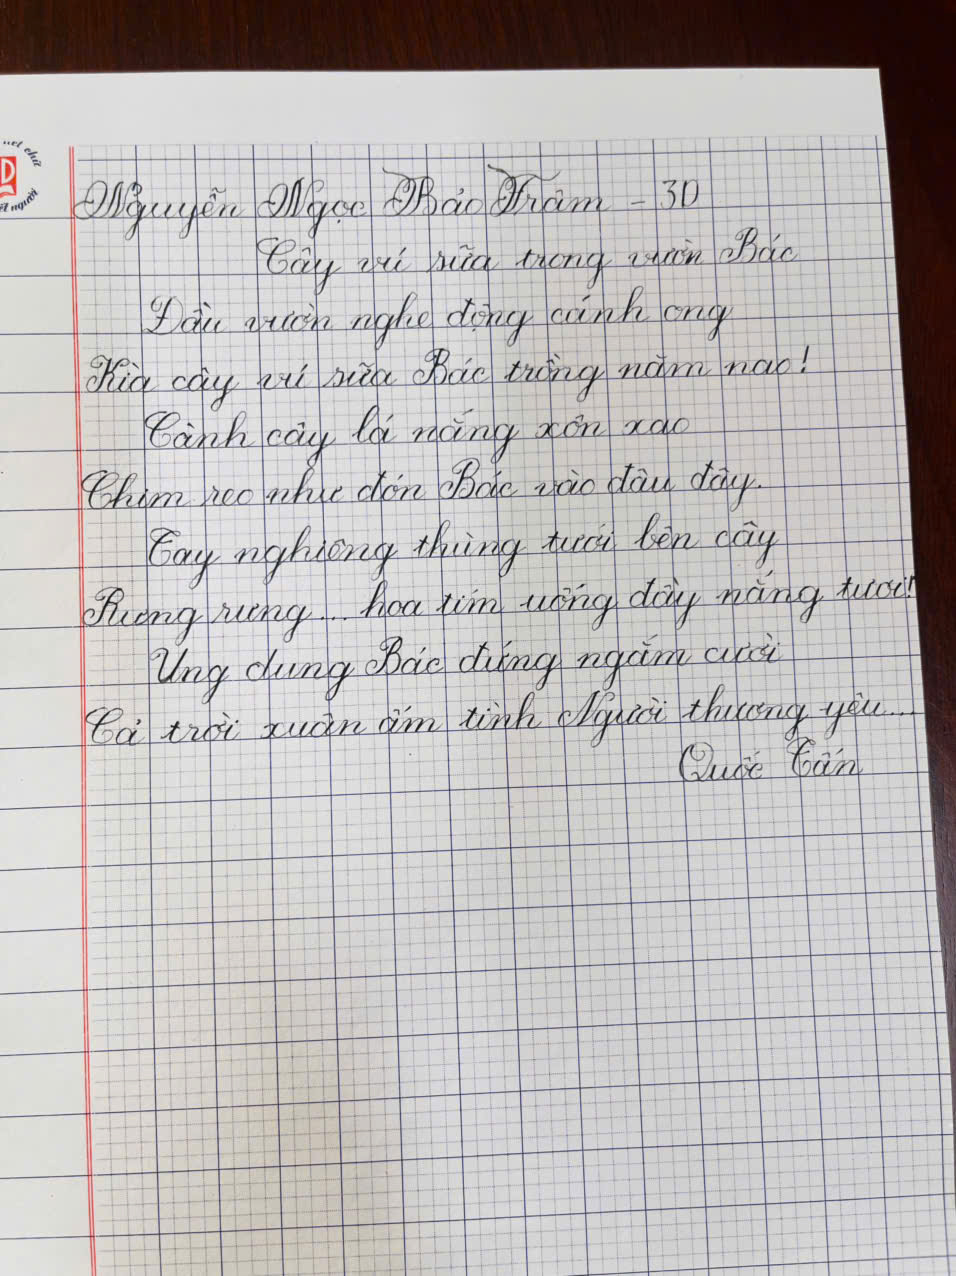 nét chữ
nết người
Nguyễn Ngọc Bảo Trâm - 3D
Cây vú sữa trong vườn Bác
Đầu vườn nghe động cánh ong
Kìa cây vú sữa Bác trồng năm nao!
Cành cây lá nắng xôn xao
Chim reo như đón Bác vào đâu đây.
Tay nghiêng thùng tưới bên cây
Rưng rưng... hoa tím uống đầy nắng tươi!
Ung dung Bác đứng ngắm cười
Cả trời xuân ấm tình Người thương yêu...
Quốc Tấn